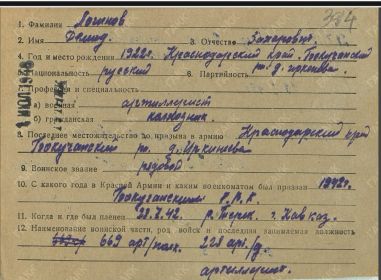 334
1. Фамилия Логинов
2. Имя Демид 3. Отчество Захарович
4. Год и место рождения 1922г. Краснодарский край Богучанский
5. Национальность русский 6. Партийность р. д. Иркинеева
7. Профессия и специальность
а) военная артиллерист
б) гражданская колхозник
8. Последнее местожительство до призыва в армию Краснодарский край
Богучанский ро. д. Иркинеева
9. Воинское звание рядовой
10. С какого года в Красной Армии и каким военкоматом был призван 1942г.
Богучанским Р.В.К.
11. Когда и где был пленен 28.7.42. р. Терек г. Кавказ.
12. Наименование воинской части, род войск и последняя занимаемая должность
669 арт/полк. 228 арт./д.
артиллерист.